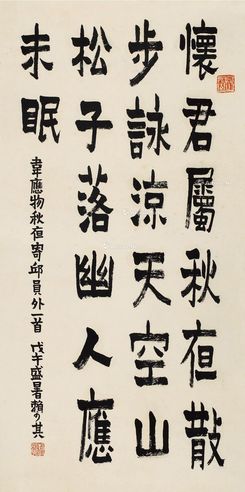 懷君屬秋夜散
步詠涼天空山
松子落幽人應
未眠
韋應物秋夜寄邱員外一首 戊午盛暑賴少其